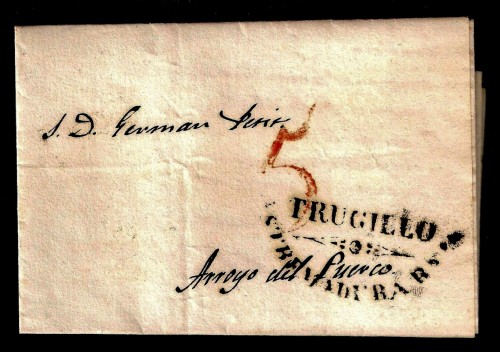 S. D. German Petit
5
TRUGILLO
ESTREMADURA
Arroyo del Puerco